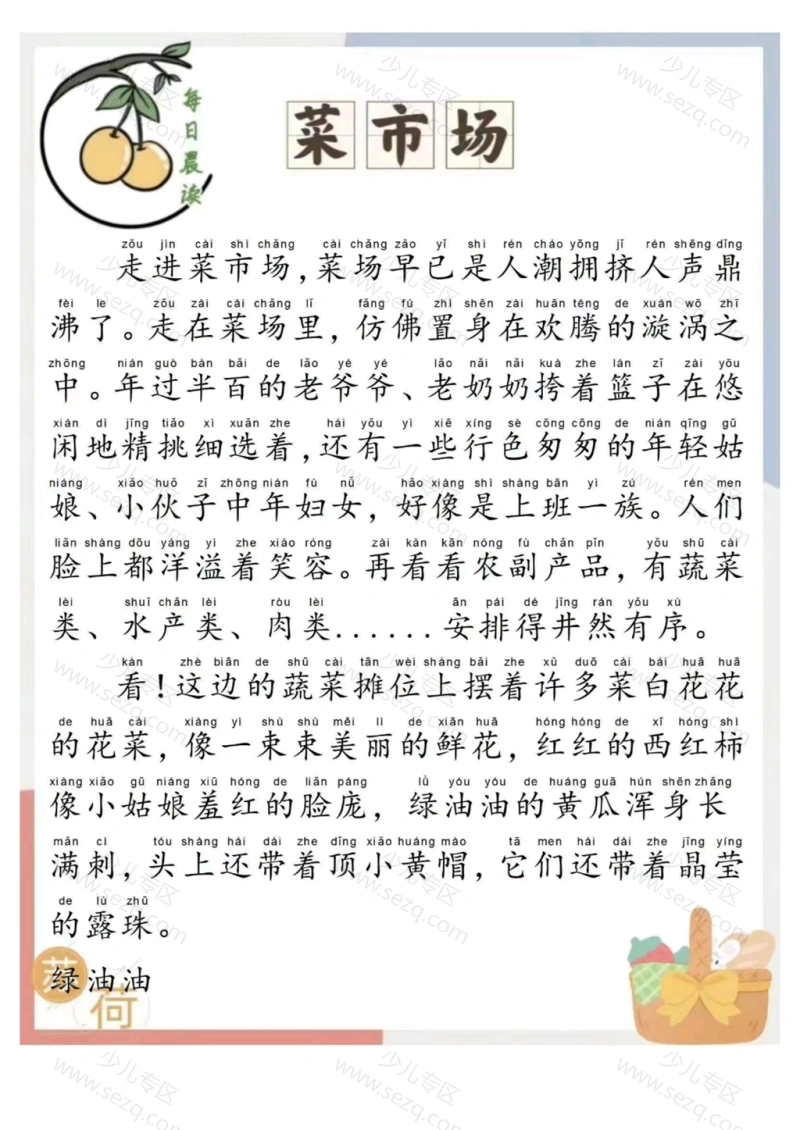 每日晨读
菜市场
zǒu jìn cài shì chǎng cài chǎng zǎo yǐ shì rén cháo yōng jǐ rén shēng dǐng
走进菜市场,菜场早已是人潮拥挤人声鼎
fèi le zǒu zài cài chǎng lǐ fǎng fú zhì shēn zài huān téng de xuán wō zhī
沸了。走在菜场里,仿佛置身在欢腾的漩涡之
zhōng nián guò bàn bǎi de lǎo yé yé lǎo nǎi nǎi kuà zhe lán zǐ zài yōu
中。年过半百的老爷爷、老奶奶挎着篮子在悠
xián dì jīng tiāo xì xuǎn zhe hái yǒu yì xiē xíng sè cōng cōng de nián qīng gū
闲地精挑细选着,还有一些行色匆匆的年轻姑
niáng xiǎo huǒ zǐ zhōng nián fù nǚ hǎo xiàng shì shàng bān yì zú rén men
娘、小伙子中年妇女,好像是上班一族。人们
liǎn shàng dōu yáng yì zhe xiào róng zài kàn kàn nóng fù chǎn pǐn yǒu shū cài
脸上都洋溢着笑容。再看看农副产品,有蔬菜
lèi shuǐ chǎn lèi ròu lèi ān pái dé jǐng rán yǒu xù
类、水产类、肉类......安排得井然有序。
kàn zhè biān de shū cài tān wèi shàng bǎi zhe xǔ duō cài bái huā huā
看!这边的蔬菜摊位上摆着许多菜白花花
de huā cài xiàng yì shù shù měi lì de xiān huā hóng hóng de xī hóng shì
的花菜,像一束束美丽的鲜花,红红的西红柿
xiàng xiǎo gū niáng xiū hóng de liǎn páng lǜ yóu yóu de huáng guā hún shēn zhǎng
像小姑娘羞红的脸庞,绿油油的黄瓜浑身长
mǎn cì tóu shàng hái dài zhe dǐng xiǎo huáng mào tā men hái dài zhe jīng yíng
满刺,头上还带着顶小黄帽,它们还带着晶莹
de lù zhū
的露珠。
绿油油
荷
少儿专区
www.sezq.com